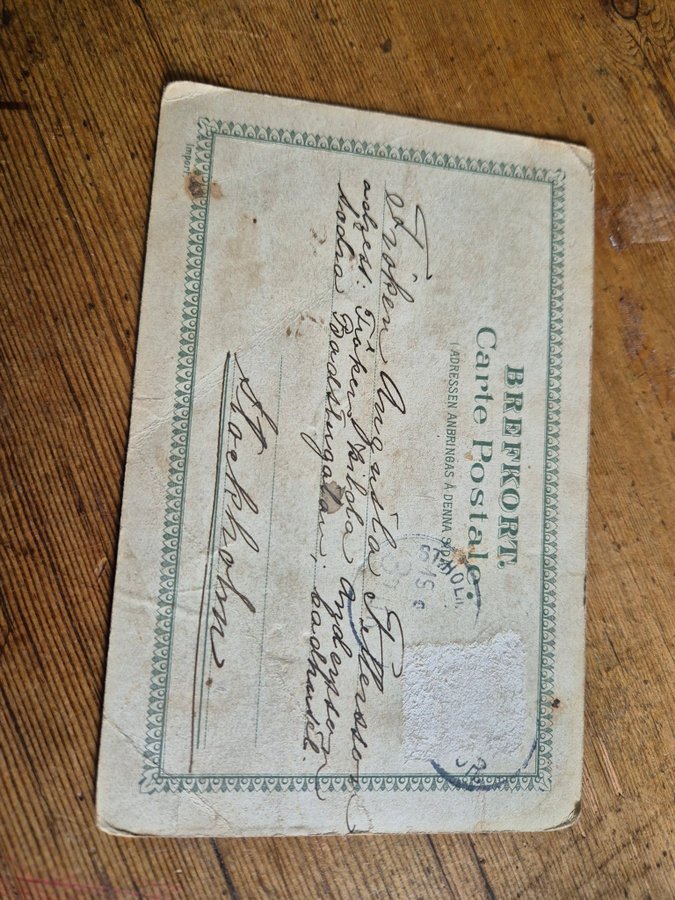 BREFKORT.
Carte Postale.
I ADRESSEN ANBRINGAS Å DENNA SIDA
Fröken Augusta Pettersson
adress: Fröken Hilda Andersson
Södra Badstugatan, badhuset.
Stockholm.
Import.